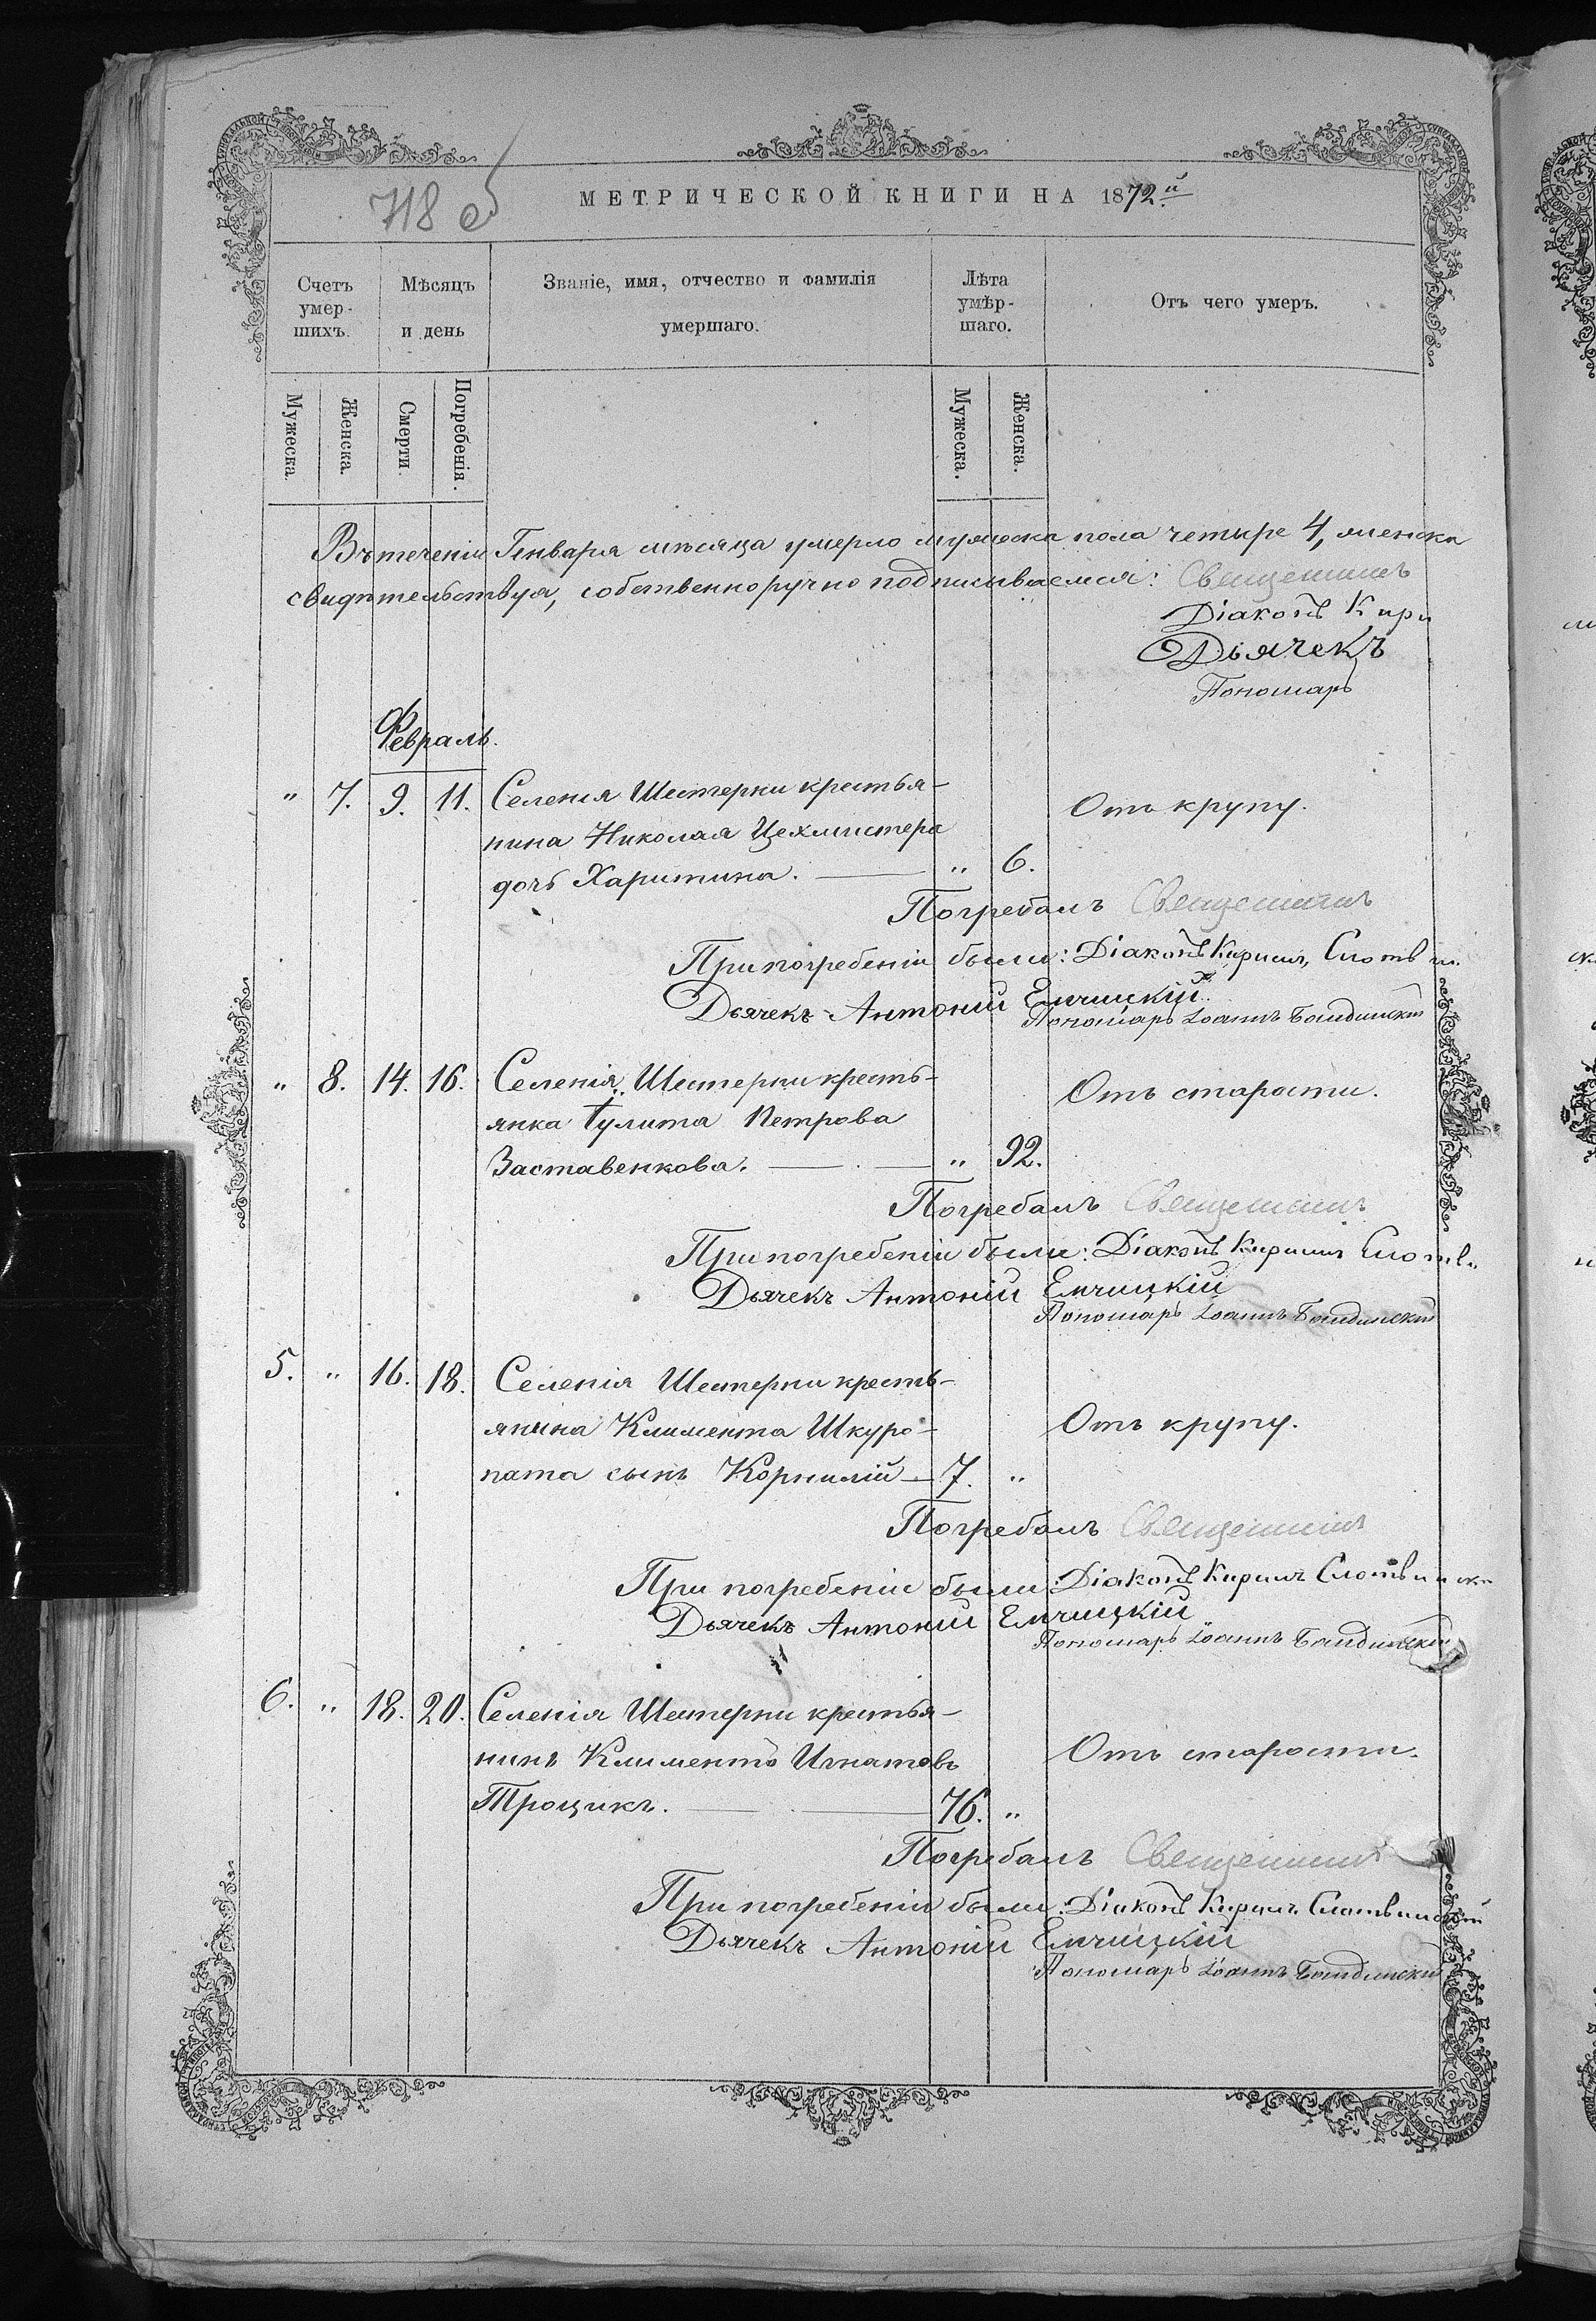 718 об
МЕТРИЧЕСКОЙ КНИГИ НА 1872й
Счетъ умер-шихъ.
Мѣсяцъ и день
Званіе, имя, отчество и фамилія умершаго.
Лѣта умѣр-шаго.
Отъ чего умеръ.
Мужеска.
Женска.
Смерти.
Погребенія.
Мужеска.
Женска.
Въ теченіи Генваря мѣсяца умерло мужеска пола четыре 4, женска
свидѣтельствуя, собственноручно подписываемся: Священникъ
Діаконъ Кири
Дьячекъ
Пономарь
Февраль.
" 7. 9. 11. Селенія Шестерни крестья-
Отъ крупу.
нина Николая Цехмистера
дочь Харитина. " 6.
Погребалъ Священникъ
При погребеніи были: Діаконъ Кирилъ
Дьячекъ Антоній Емчицкій
Пономарь Іоаннъ
" 8. 14. 16. Селенія Шестерни кресть-
Отъ старости.
янка Іулита Петрова
Заставенкова. " 92.
Погребалъ Священникъ
При погребеніи были: Діаконъ Кирилъ
Дьячекъ Антоній Емчицкій
Пономарь Іоаннъ
5. " 16. 18. Селенія Шестерни кресть-
янина Климента Шкуро-
Отъ крупу.
пата сынъ Корнилій 7. "
Погребалъ Священникъ
При погребеніи были: Діаконъ Кирилъ
Дьячекъ Антоній Емчицкій
Пономарь Іоаннъ
6. " 18. 20. Селенія Шестерни крестья-
нинъ Климентъ Игнатовъ
Отъ старости.
Троцикъ. 76. "
Погребалъ Священникъ
При погребеніи были: Діаконъ Кирилъ Слотвинскій
Дьячекъ Антоній Емчицкій
Пономарь Іоаннъ